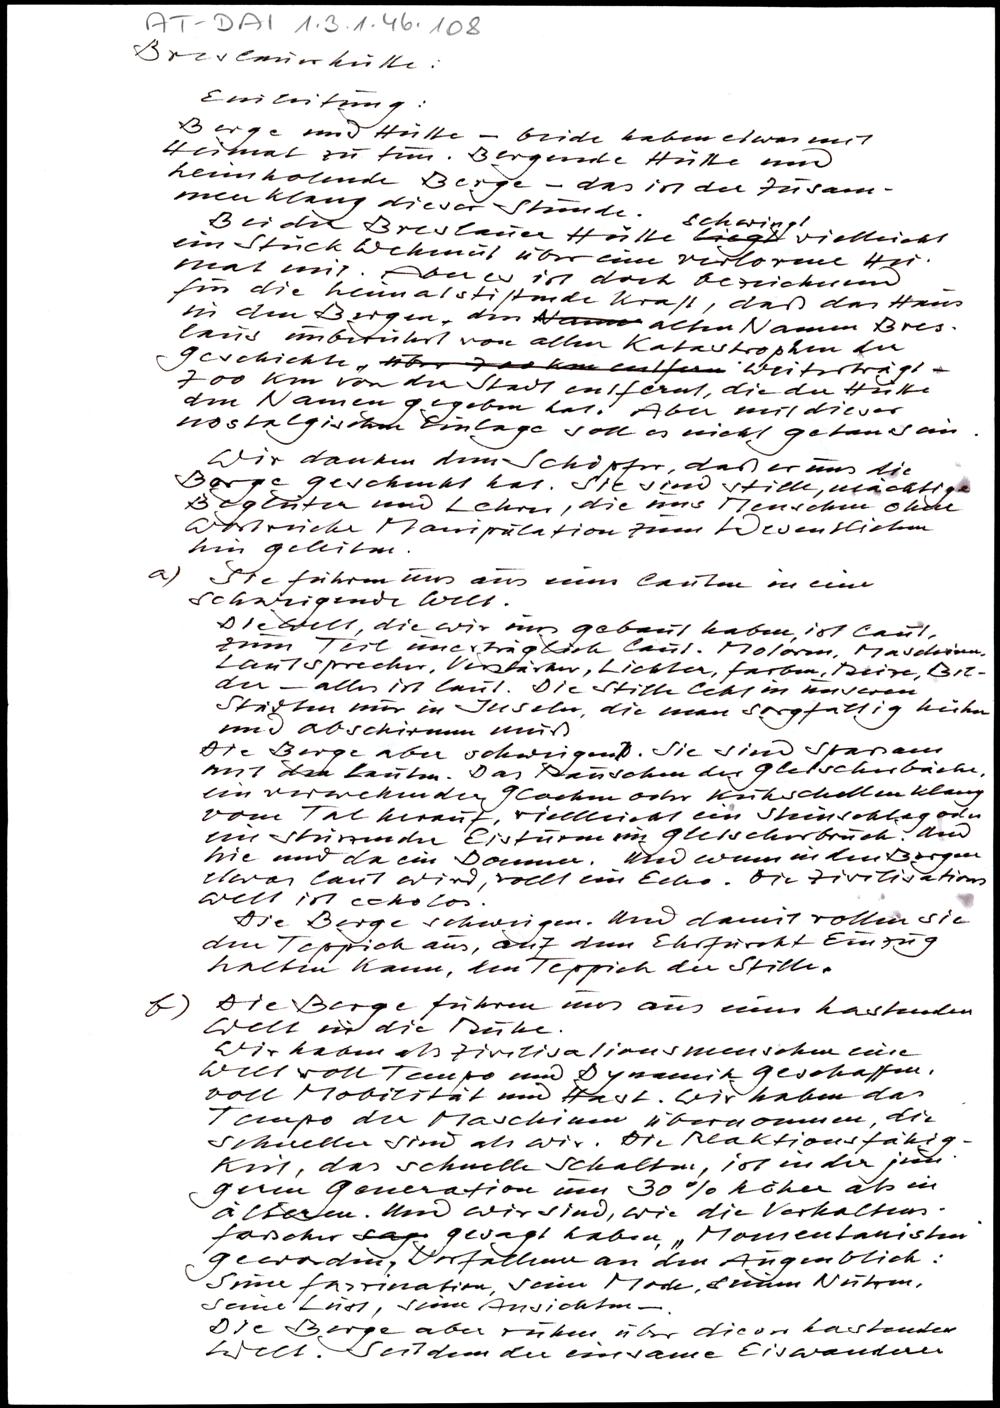 AT-DAI 1.3.1.46.108
Breslauerhütte:
Einleitung:
Berge und Hütte – beide haben etwas mit
Heimat zu tun. Bergende Hütte und
heimholende Berge – das ist der Zusam-
menklang dieser Stunde.
Bei der Breslauer Hütte liegt schwingt vielleicht
ein Stück Wehmut über eine verlorene Hei-
mat mit. Aber es ist doch bezeichnend
für die heimatstiftende Kraft, daß das Haus
in den Bergen, den Namen alten Namen Bres-
laus unberührt von allen Katastrophen der
Geschichte, über 700 km entfern weiterträgt –
700 km von der Stadt entfernt, die der Hütte
den Namen gegeben hat. Aber mit dieser
nostalgischen Einlage soll es nicht getan sein.
Wir danken dem Schöpfer, daß er uns die
Berge geschenkt hat. Sie sind stille, mächtige
Begleiter und Lehrer, die uns Menschen ohne
wortreiche Manipulation zum Wesentlichen
hin geleiten.
a) Sie führen uns aus einer lauten in eine
schweigende Welt.
Die Welt, die wir uns gebaut haben, ist laut,
zum Teil unerträglich laut. Motoren, Maschinen,
Lautsprecher, Verstärker, Lichter, Farben, Reize, Bil-
der – alles ist laut. Die Stille lebt in unseren
Städten nur in Inseln, die man sorgfältig hüten
und abschirmen muß
Die Berge aber schweigen. Sie sind sparsam
mit den Lauten. Das Rauschen der Gletscherbäche,
ein verwehender Glocken oder Kuhschellenklang
vom Tal herauf, vielleicht ein Steinschlag oder
ein stürzender Eisturm im Gletscherbruch. Und
hie und da ein Donner. Und wenn in den Bergen
etwas laut wird, rollt ein Echo. Die Zivilisations
welt ist echolos.
Die Berge schweigen. Und damit rollen sie
den Teppich aus, auf dem Ehrfurcht Einzug
halten kann, den Teppich der Stille.
b) Die Berge führen uns aus einer hastenden
Welt in die Ruhe.
Wir haben als Zivilisationsmenschen eine
Welt voll Tempo und Dynamik geschaffen,
voll Mobilität und Hast. Wir haben das
Tempo der Maschinen übernommen, die
schneller sind als wir. Die Reaktionsfähig-
keit, das schnelle Schalten, ist in der jün-
geren Generation um 30% höher als in
älteren. Und wir sind, wie die Verhaltens-
forscher sag gesagt haben, „Momentanisten
geworden, Verfallene an den Augenblick:
Seine Faszination, seine Mode, seinen Nutzen,
seine Lust, seine Ansichten –.
Die Berge aber ruhen über dieser hastenden
Welt. Seitdem der einsame Eiswanderer